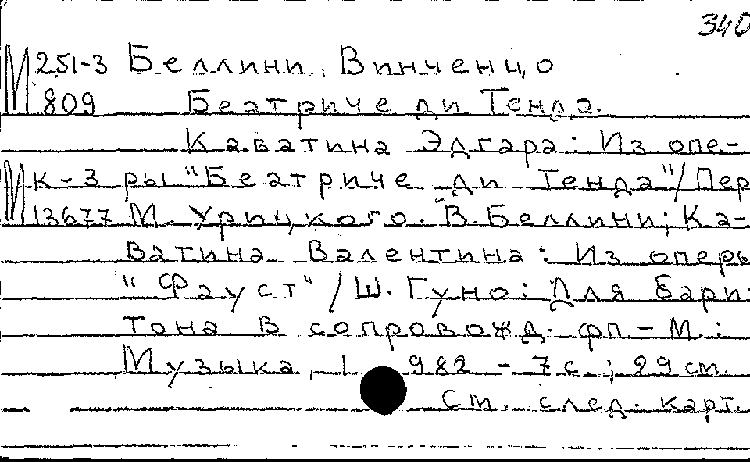 340
М 251-3 Беллини, Винченцо
809 Беатриче ди Тенда.
Каватина Эдгара: Из опе-
М К-3 ры "Беатриче ди Тенда"/Пер
13677 М. Урицкого. В. Беллини; Ка-
ватина Валентина: Из оперы
"Фауст"/Ш. Гуно: Для бари
тона в сопровожд. фп.-М.:
Музыка, 1982 - 7с.; 29см.
См. след. карт.